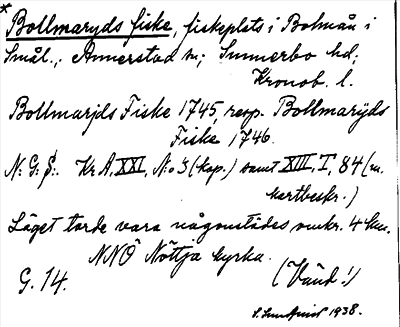 * Bollmaryds fiske, fiskeplats i Bolmån i
Smål., Annerstad sn; Sunnerbo hd;
Kronob. l.
Bollmarjds Fiske 1745, resp. Bollmarÿds
Fiske 1746.
N: G: S:. Kr A, XXI, N:o 3 (kop.) samt XIII, I, 84 (m.
kartbeskr.)
Läget torde vara någonstädes omkr. 4 km.
NNÖ Nöttja kyrka.
G. 14. (Vänd!)
1938.